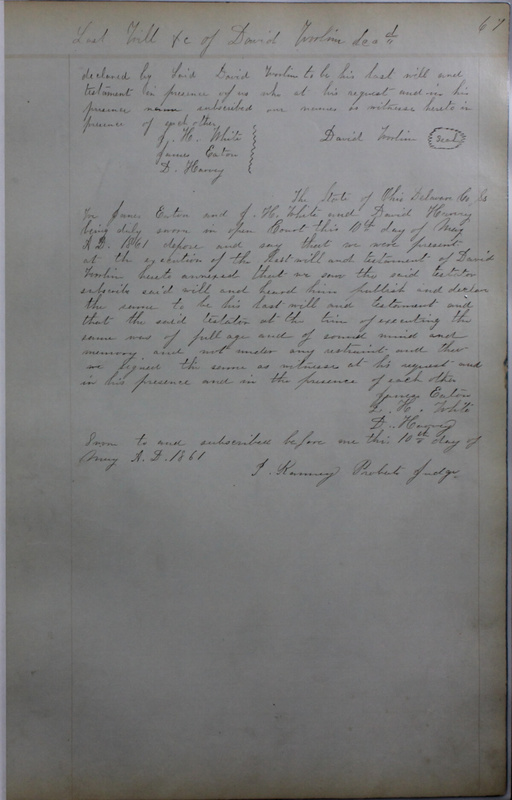 67
Last Will &c of David Woolin dec'd
declared by Said David Woolin to be his last will and
testament in presence of us who at his request and in his
presence subscribed our names as witness hereto in
presence of each other
J. H. White
James Eaton
D. Harvey
David Woolin Seal
The State of Ohio Delaware Co. Ss
We James Eaton and J. H. White and David Harvey
being duly sworn in open Court this 10th day of
A.D. 1861 depose and say that we were present
at the execution of the Last will and testament of David
Woolin hereto annexed that we saw the said testator
subscribe said will and heard him publish and declare
the same to be his last will and testament and
that the said testator at the time of executing the
same was of full age and of sound mind and
memory and not under any restraint and that
we signed the same as witnesses at his request and
in his presence and in the presence of each other
James Eaton
J. H. White
D. Harvey
Sworn to and subscribed before me this 10th day of
A.D. 1861
Probate Judge